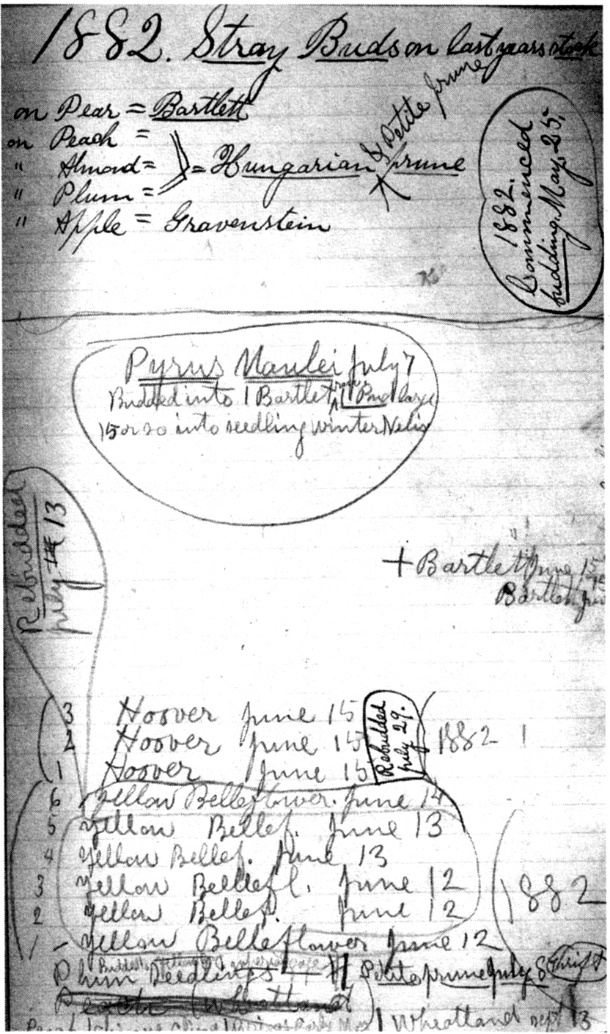 1882. Stray Buds on last years stock
on Pear = Bartlett
on Peach =
" Almond = = Hungarian prune
& Petite prune
" Plum =
" Apple = Gravenstein
1882.
Commenced
budding May. 25.
Pyrus Maulei July 7
Budded into 1 Bartlet, Bud large
15 or 20 into seedling winter Nelis
Rebudded
July 13
+ Bartlet June 15
Bartlet
3 Hoover June 15
2 Hoover June 15
1 Hoover June 15
Rebudded
July 29.
1882
6 yellow Belleflower. June 14
5 yellow Bellef. June 13
4 yellow Bellef. June 13
3 yellow Bellefl. June 12
2 yellow Bellef. June 12
1 - yellow Belleflower June 12
1882
Plum Seedlings Petite prune July 8
Peach (Wheatland
1 Wheatland Sept 13